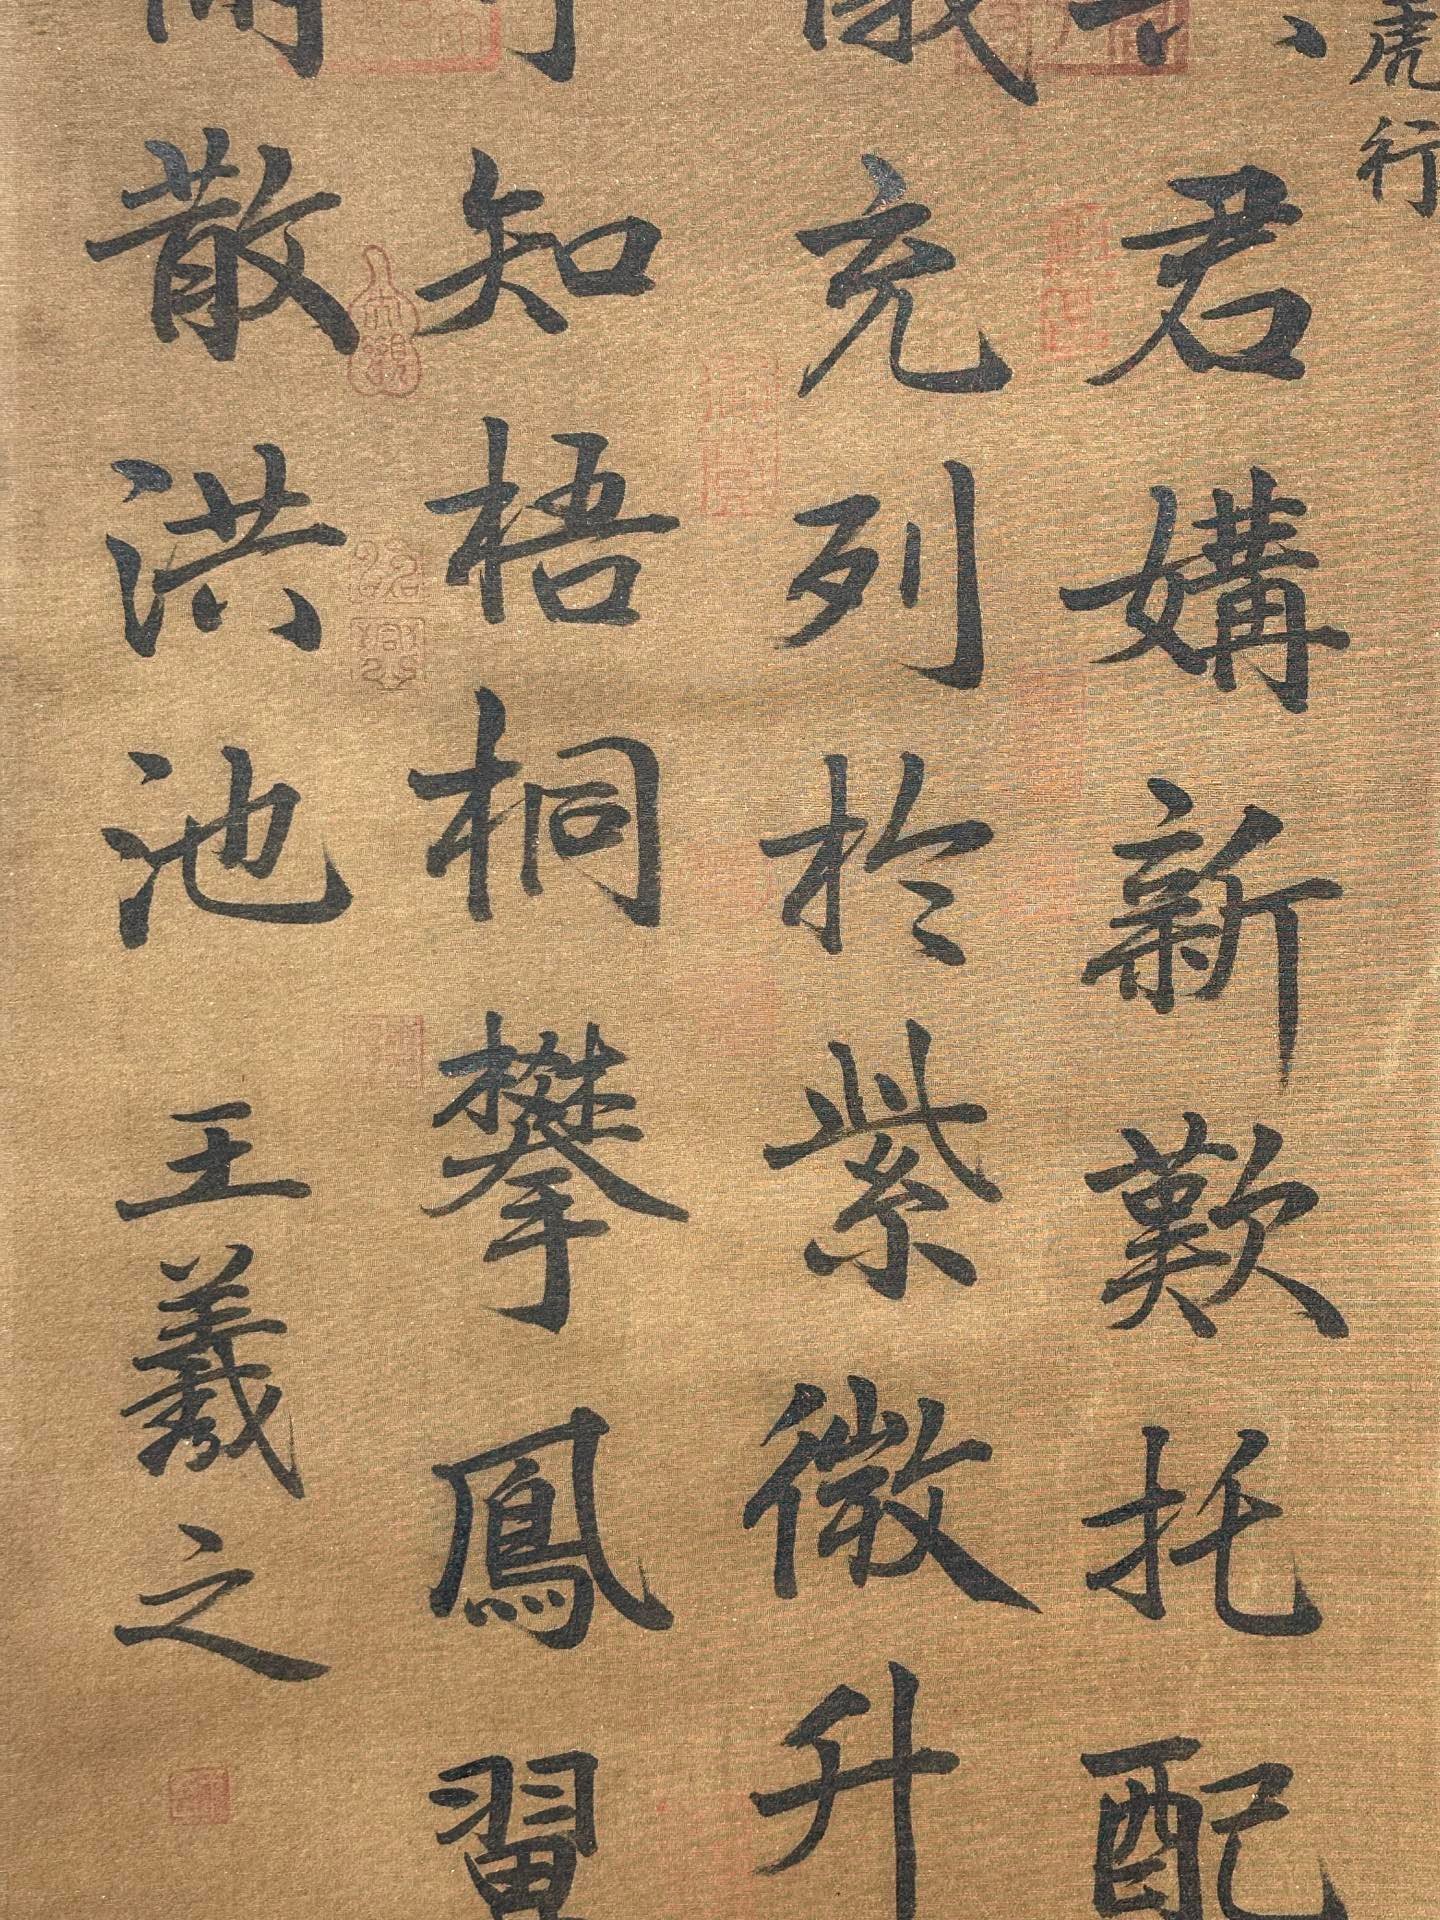 虎行
君媾新歎托配
充列於紫微升
知梧桐攀鳳翼
散洪池
王羲之